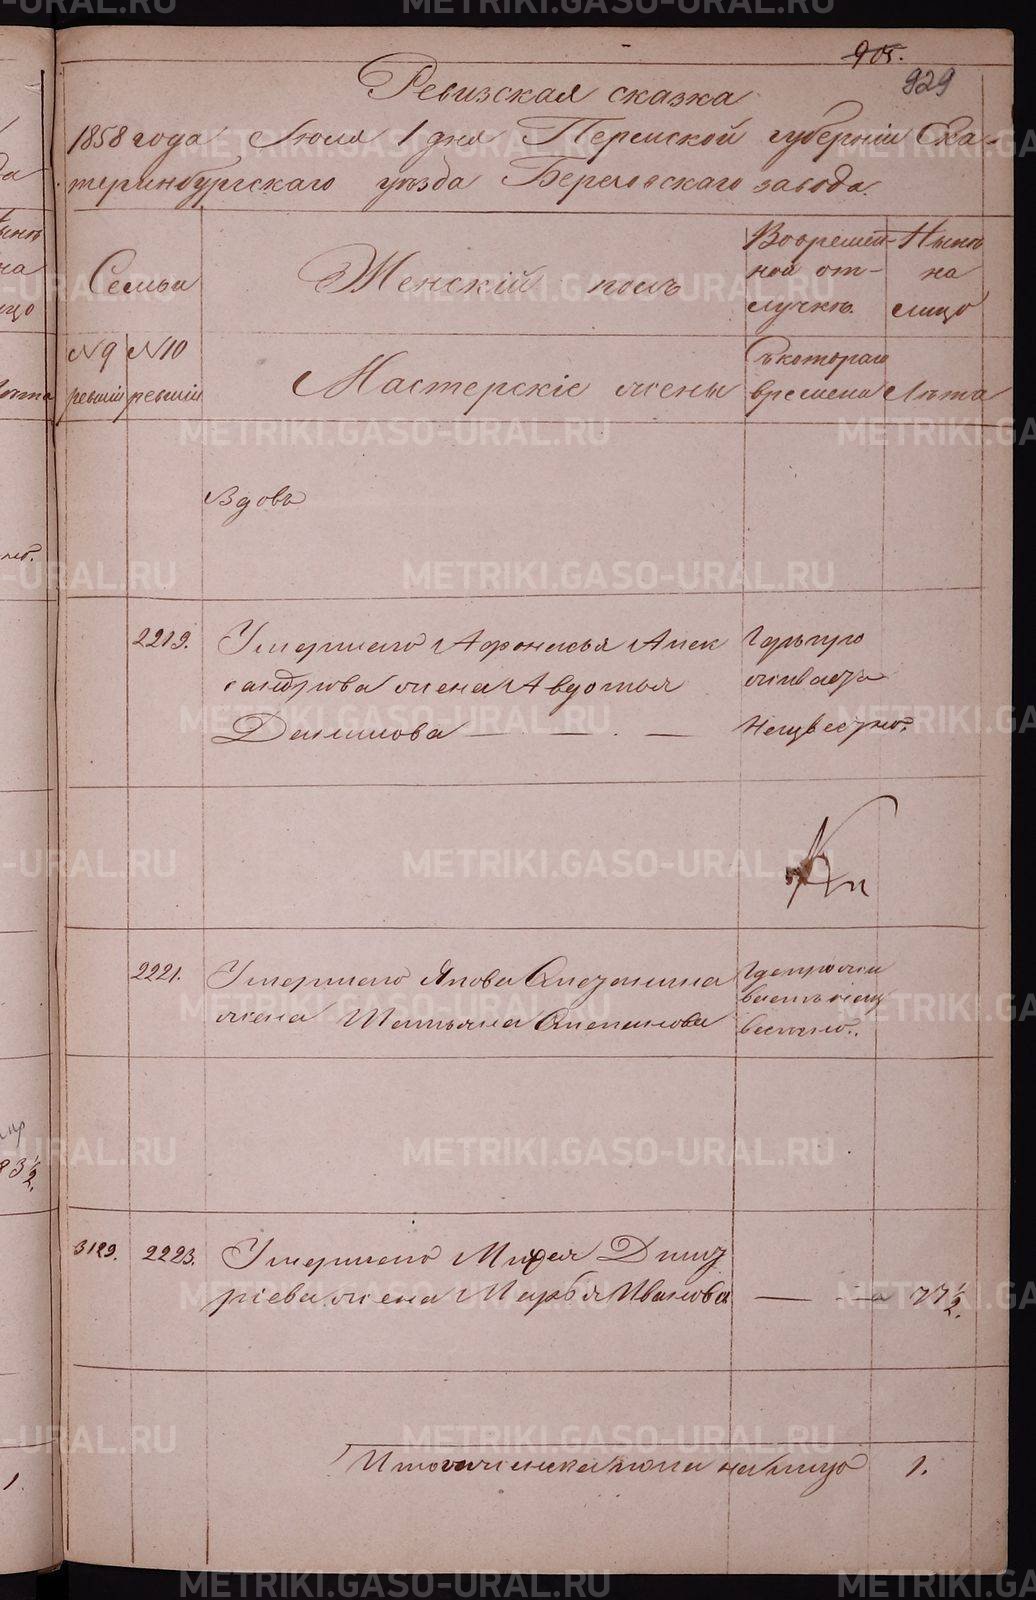 905.
929
Ревизская сказка
1858 года Июля 1 дня Пермской губернии Ека-
теринбургскаго уезда Березовскаго завода.
Семьи
Женскій полъ
Вовремен-
ной от-
лучкѣ.
Нынѣ
на
лицо
№ 9 ревизіи
№ 10 ревизіи
Мастерскіе жены
Съ котораго
времени
Лѣта
Вдовы
2219.
Умершаго Афонасья Алек
сандрова жена Авдотья
Данилова — — —
Где
неизвестно.
2221.
Умершаго Якова
жена Татьяна Степанова
Где прожи
ваетъ неиз
вестно.
3129.
2223.
Умершаго Дмит
ріева жена Марья Иванова — — 77 1/2.
Итого женска пола на лицо 1.
METRIKI.GASO-URAL.RU